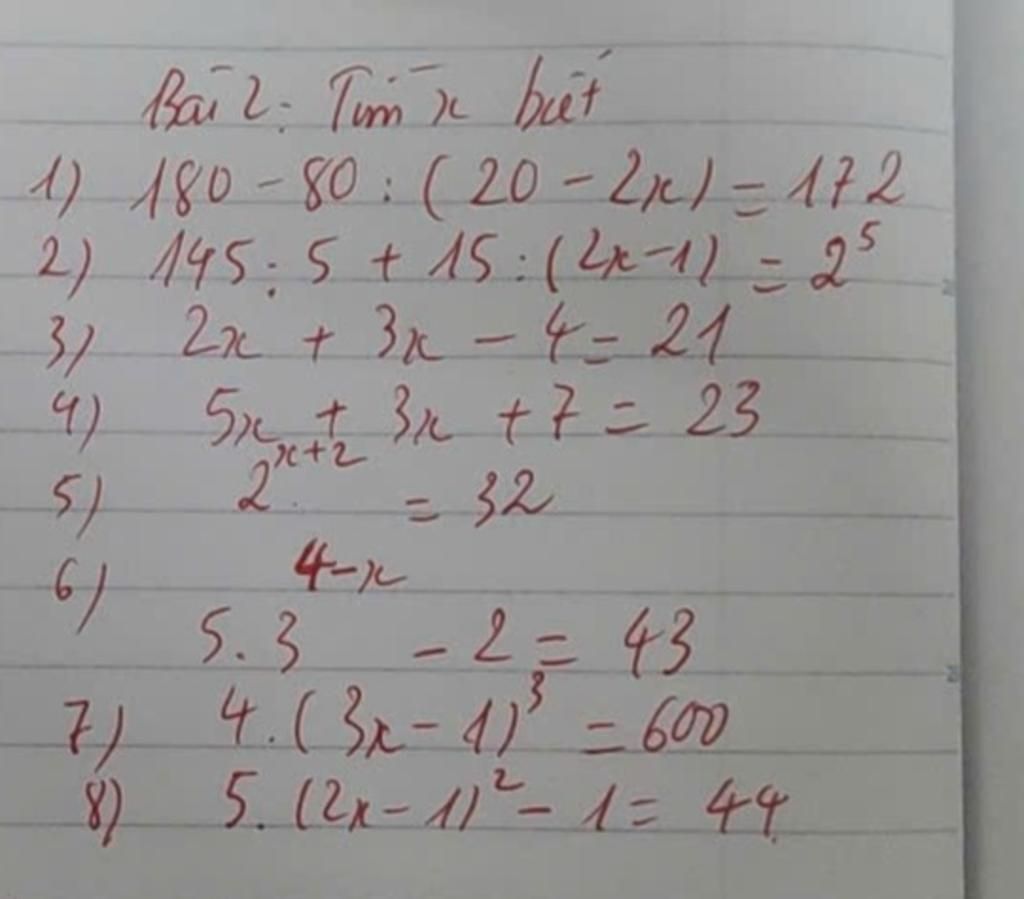 Bài 2: Tìm x biết
1) 180 - 80 : (20 - 2x) = 172
2) 145 : 5 + 15 : (2x-1) = 2⁵
3) 2x + 3x - 4 = 21
4) 5x + 3x + 7 = 23
5) 2ˣ⁺² = 32
6) 5.3⁴⁻ˣ - 2 = 43
7) 4.(3x-1)³ = 600
8) 5.(2x-1)² - 1 = 44